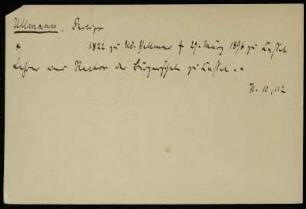 Ullmann, Philipp
* 1822 zu Nd. † 29. März 1896 zu Cassel
Lehrer und Rektor der Bürgerschule zu Cassel.
H. 10, 112